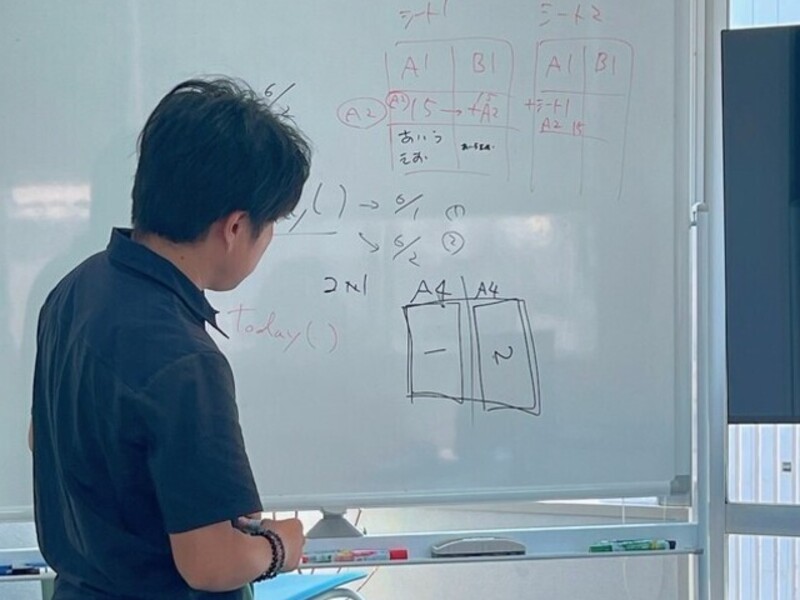 シート1 シート2
A1 B1 A1 B1
6/
A2 A2 15 → +A2 +シート1
A2 15
あいう
えお
() → 6/1 ①
↘ 6/2 ②
2 N 1 A4 A4
Today()
1 2